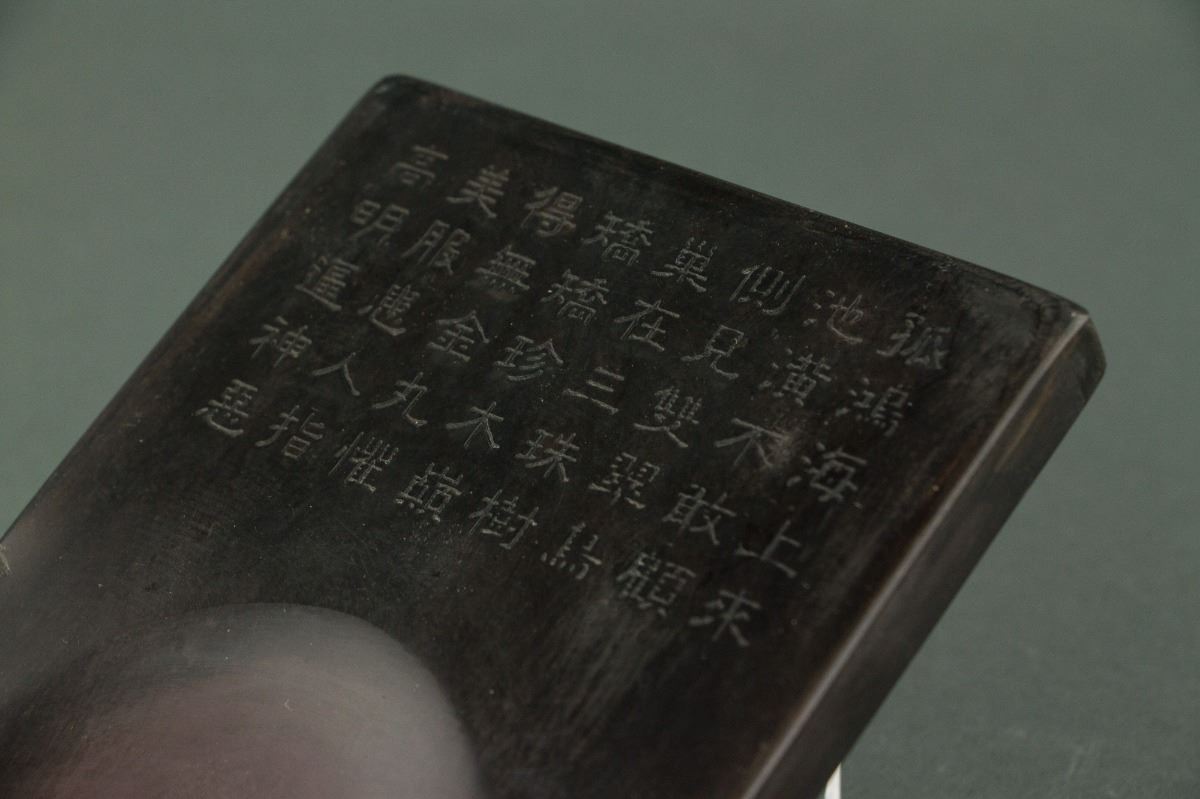 孤鴻海上來
池潢不敢顧
側見雙翠鳥
巢在三珠樹
矯矯珍木巔
得無金丸懼
美服患人指
高明逼神惡